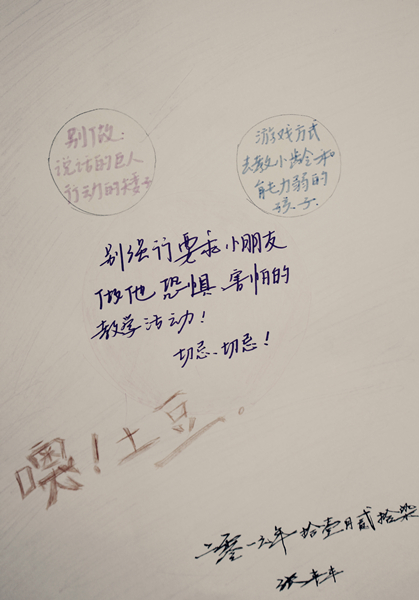 别做：
说话的巨人
行动的矮子
游戏方式
去教小龄和
能力弱的
孩子.
别强行要求小朋友
做他恐惧、害怕的
教学活动！
切忌、切忌！
噢！土豆.
二零一六年拾壹月贰拾柒